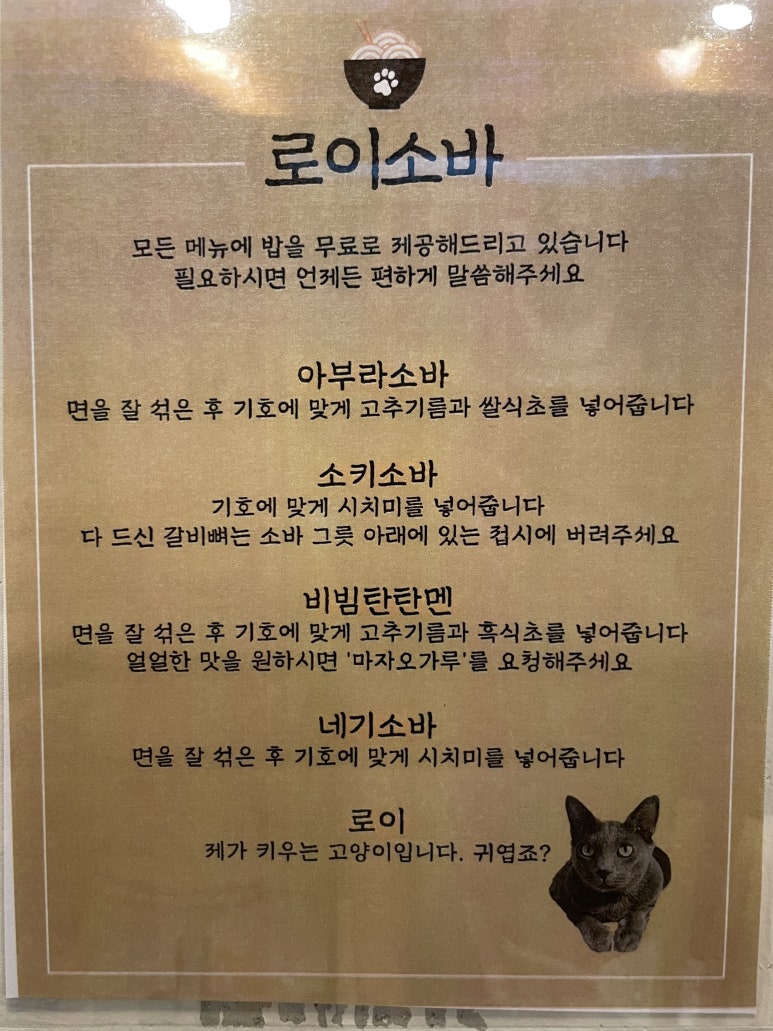 로이소바
모든 메뉴에 밥을 무료로 제공해드리고 있습니다
필요하시면 언제든 편하게 말씀해주세요
아부라소바
면을 잘 섞은 후 기호에 맞게 고추기름과 쌀식초를 넣어줍니다
소키소바
기호에 맞게 시치미를 넣어줍니다
다 드신 갈비뼈는 소바 그릇 아래에 있는 접시에 버려주세요
비빔탄탄멘
면을 잘 섞은 후 기호에 맞게 고추기름과 흑식초를 넣어줍니다
얼얼한 맛을 원하시면 '마자오가루'를 요청해주세요
네기소바
면을 잘 섞은 후 기호에 맞게 시치미를 넣어줍니다
로이
제가 키우는 고양이입니다. 귀엽죠?